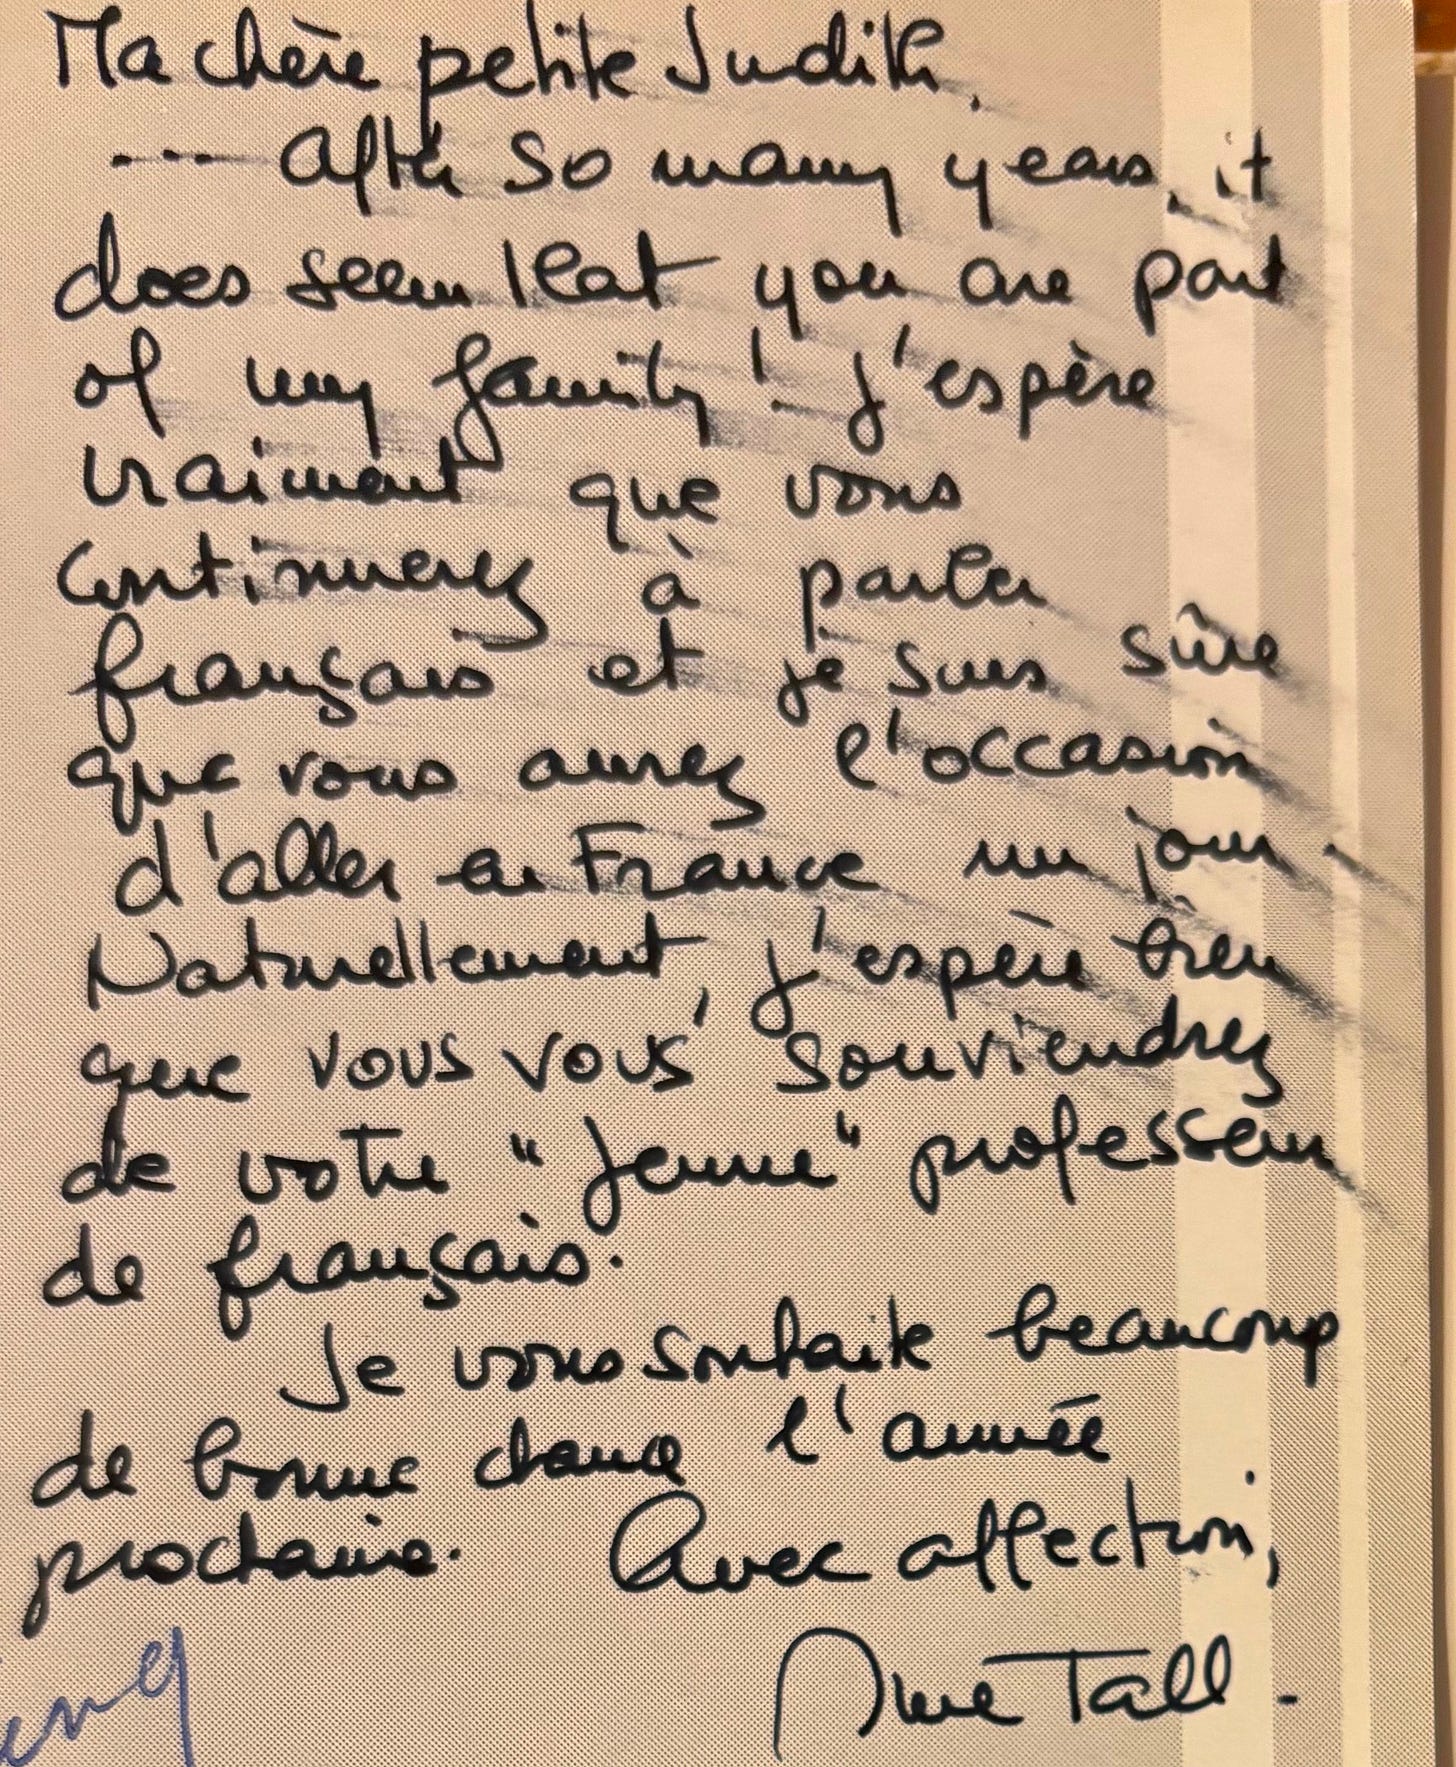 Ma chère petite Judith,
---- After so many years, it
does seem that you are part
of my family! J'espère
vraiment que vous
continuerez à parler
français et je suis sûre
que vous aurez l'occasion
d'aller en France un jour.
Naturellement, j'espère bien
que vous vous souviendrez
de votre "jeune" professeur
de français.
Je vous souhaite beaucoup
de bonne chance l'année
prochaine. Avec affection,
Anne Tall -